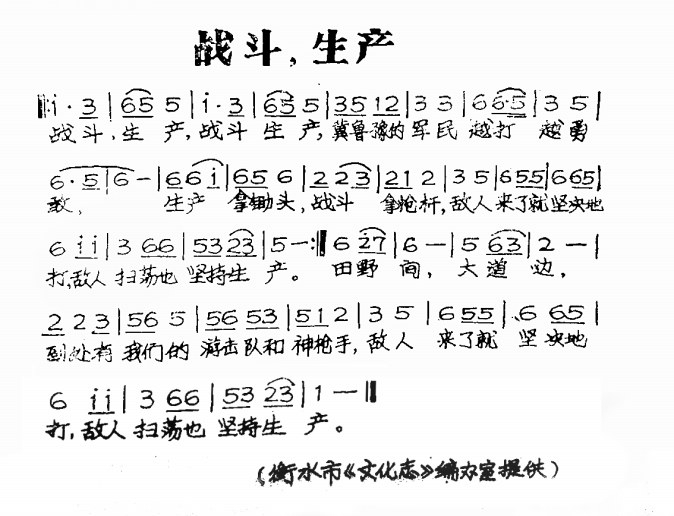 战斗，生产
‖:i·3|65 5|i·3|65 5|35 12|3 3|6 6·5|3 5|
战斗，生 产，战斗 生 产，冀鲁豫的 军民 越打 越勇
6·5|6 —|6 6 i|65 6|2 23|21 2|3 5|6 55|6 65|
敢， 生产 拿锄头，战斗 拿枪杆，敌人 来了就 坚决地
6 ii|3 66|53 23|5 —:‖6 27|6 —|5 63|2 —|
打，敌人 扫荡也 坚持生 产。 田野 间，大道 边，
2 2 3|56 5|56 53|51 2|3 5|6 55|6 65|
到处有 我们的 游击队和 神枪手，敌人 来了就 坚决地
6 ii|3 66|53 23|1 —‖
打，敌人 扫荡也 坚持生 产。
（衡水市《文化志》编办室提供）